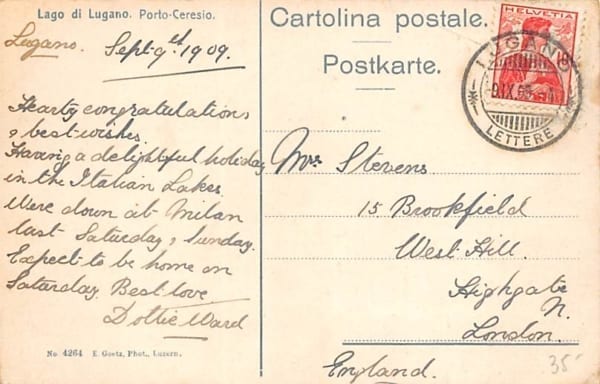 Lago di Lugano. Porto-Ceresio.
Lugano. Sept. 9th 1909.
Hearty congratulations
& best wishes.
Having a delightful holiday
in the Italian Lakes.
Were down at Milan
last Saturday & Sunday.
Expect to be home on
Saturday. Best love
Dottie Ward
No 4264 E. Goetz, Phot., Luzern.
Cartolina postale.
Postkarte.
HELVETIA
10
LUGANO
9.IX.09.
LETTERE
Mrs Stevens
15 Brookfield
West Hill.
Highgate
N.
London.
England.
35